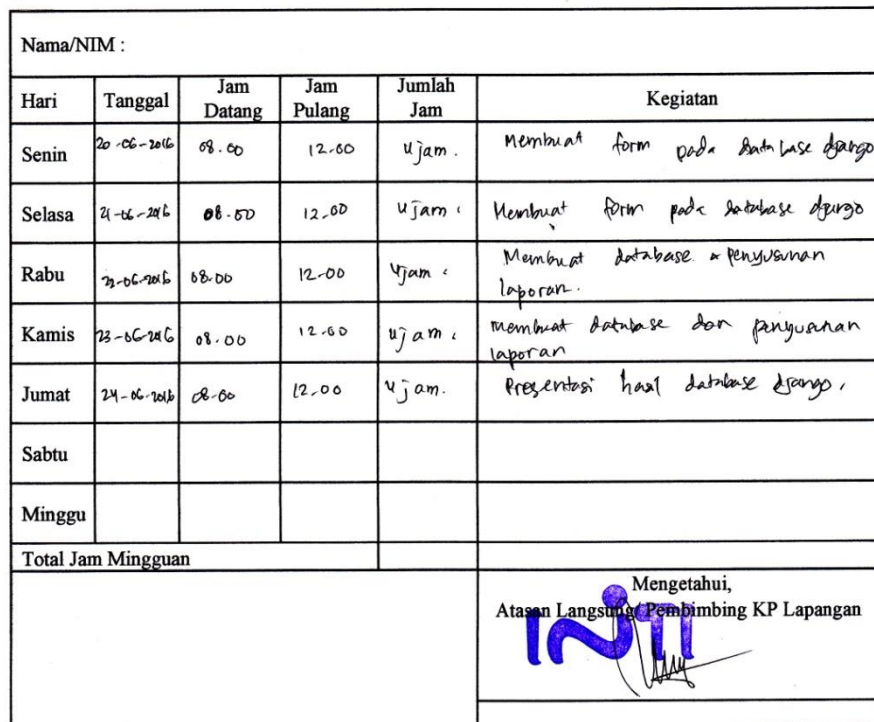 Nama/NIM :
Hari Tanggal Jam Datang Jam Pulang Jumlah Jam Kegiatan
Senin 20-06-2016 08.00 12.00 4 jam. Membuat form pada database django
Selasa 21-06-2016 08.00 12.00 4 jam. Membuat form pada database django
Rabu 22-06-2016 08.00 12.00 4 jam. Membuat database & penyusunan
laporan.
Kamis 23-06-2016 08.00 12.00 4 jam. membuat database dan penyusunan
laporan
Jumat 24-06-2016 08.00 12.00 4 jam. Presentasi hasil database django.
Sabtu
Minggu
Total Jam Mingguan
Mengetahui,
Atasan Langsung/ Pembimbing KP Lapangan
INTI